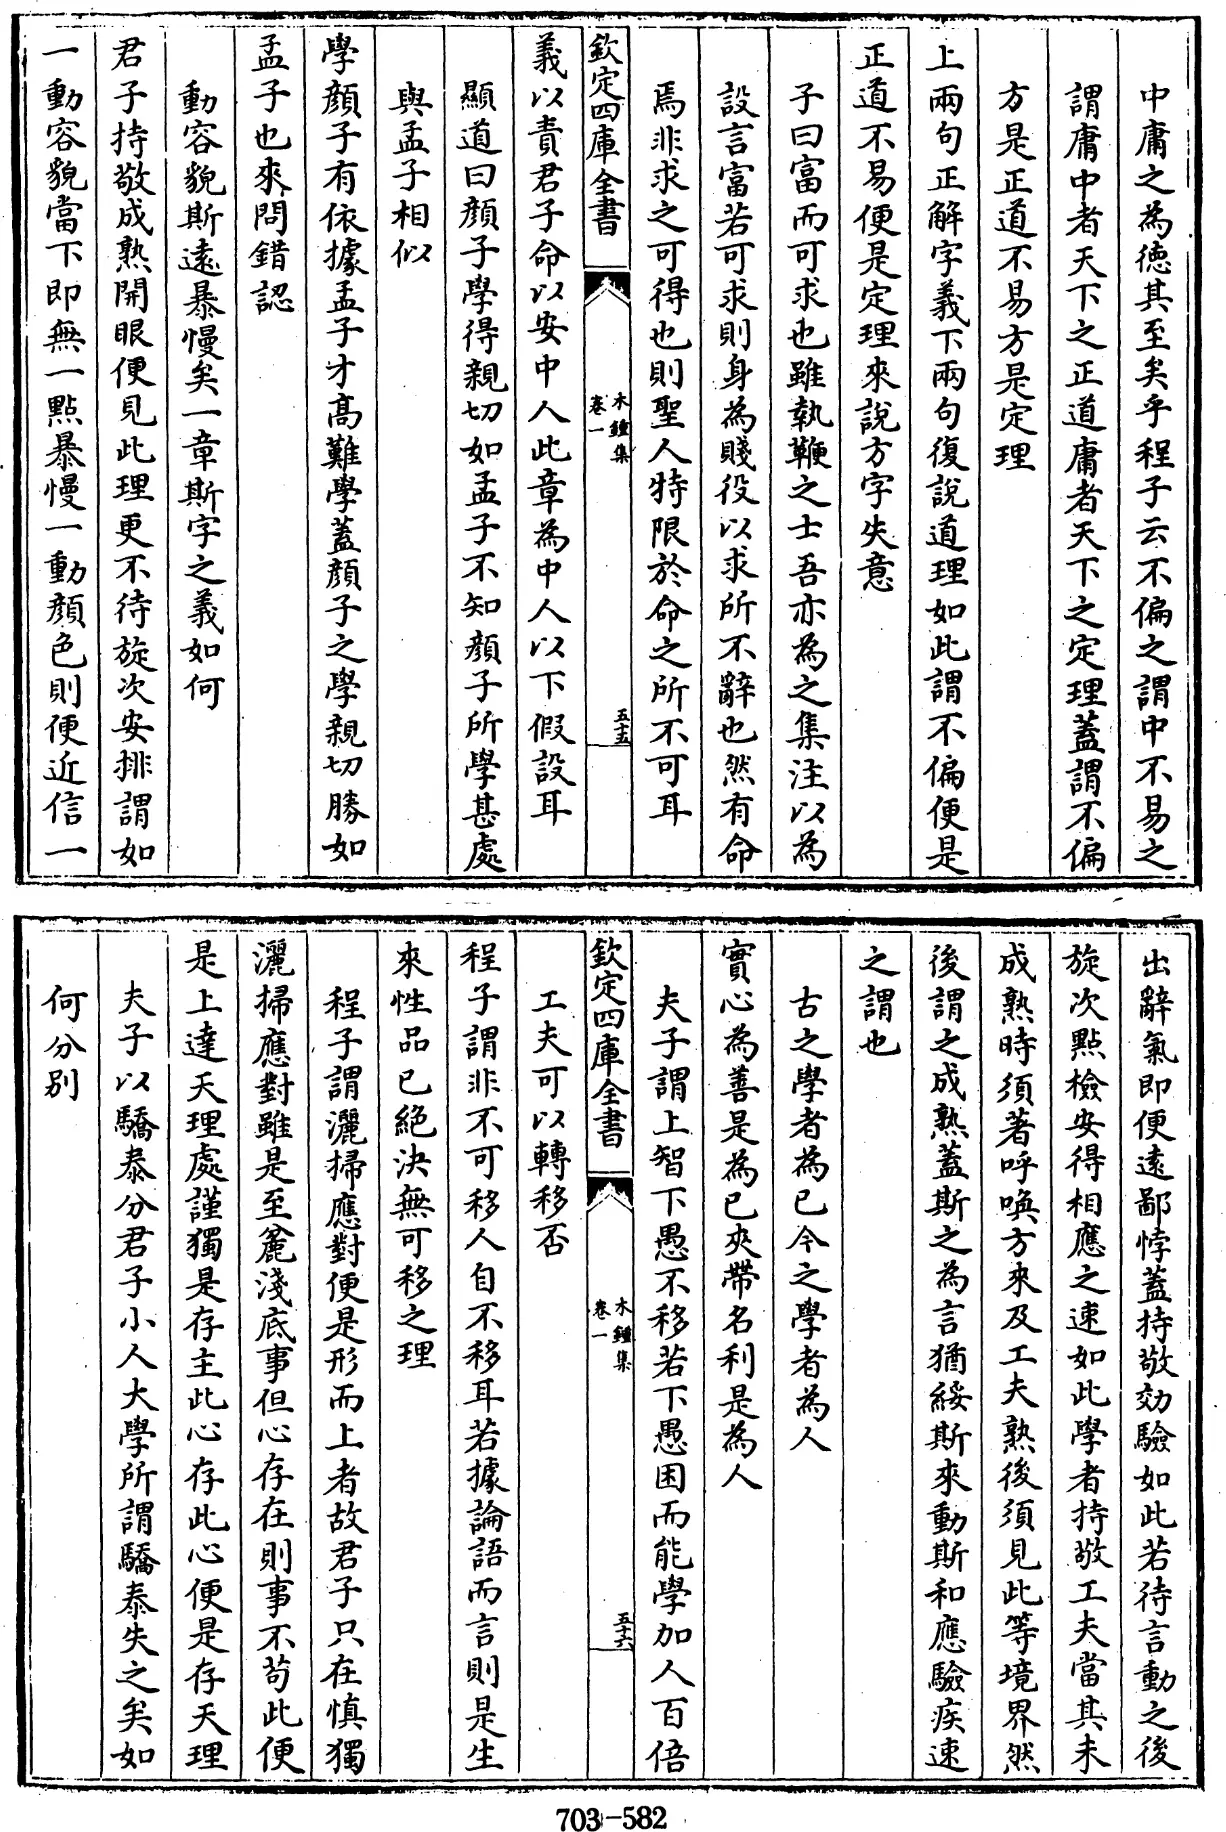 中庸之為徳其至矣乎程子云不偏之謂中不易之
謂庸中者天下之正道庸者天下之定理葢謂不偏
方是正道不易方是定理
上兩句正解字義下兩句復說道理如此謂不偏便是
正道不易便是定理來說方字失意
子曰富而可求也雖執鞭之士吾亦為之集注以為
設言富若可求則身為賤役以求所不辭也然有命
焉非求之可得也則聖人特限於命之所不可耳
欽定四庫全書
木鐘集
卷一
五十五
義以責君子命以安中人此章為中人以下假設耳
顯道曰顔子學得親切如孟子不知顔子所學甚處
與孟子相似
學顔子有依據孟子才髙難學葢顔子之學親切勝如
孟子也來問錯認
動容貌斯遠暴慢矣一章斯字之義如何
君子持敬成熟開眼便見此理更不待旋次安排謂如
一動容貌當下即無一點暴慢一動顔色則便近信一
出辭氣即便遠鄙悖葢持敬効驗如此若待言動之後
旋次點檢安得相應之速如此學者持敬工夫當其未
成熟時須著呼喚方來及工夫熟後須見此等境界然
後謂之成熟葢斯之為言猶綏斯來動斯和應驗疾速
之謂也
古之學者為已今之學者為人
實心為善是為已夾帶名利是為人
夫子謂上智下愚不移若下愚困而能學加人百倍
欽定四庫全書
木鐘集
卷一
五十六
工夫可以轉移否
程子謂非不可移人自不移耳若據論語而言則是生
來性品已絶決無可移之理
程子謂灑掃應對便是形而上者故君子只在慎獨
灑掃應對雖是至麄淺底事但心存在則事不茍此便
是上達天理處謹獨是存主此心存此心便是存天理
夫子以驕泰分君子小人大學所謂驕泰失之矣如
何分别
703-582